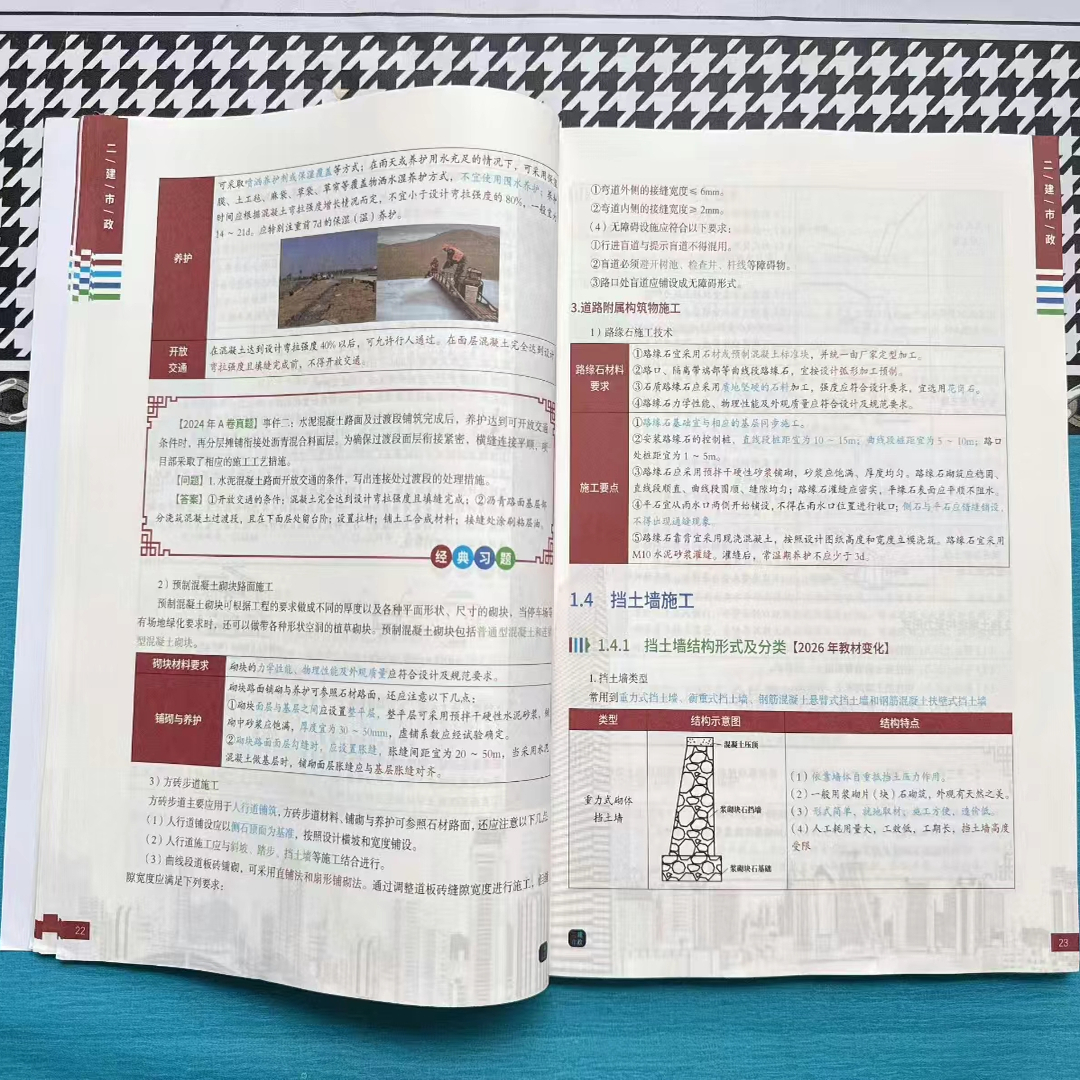 二/建/市/政
养护
可采取喷洒养护剂或保湿覆盖等方式；在雨天或养护用水充足的情况下，可采用保湿
膜、土工毡、麻袋、草袋、草帘等覆盖物洒水湿养护方式，不宜使用围水养护；养护
时间应根据混凝土弯拉强度增长情况而定，不宜小于设计弯拉强度的80%，一般宜为
14～21d。应特别注重前7d的保湿（温）养护。
开放
交通
在混凝土达到设计弯拉强度40%以后，可允许行人通过。在面层混凝土完全达到设计
弯拉强度且填缝完成前，不得开放交通。
【2024年A卷真题】事件二：水泥混凝土路面及过渡段铺筑完成后，养护达到可开放交通
条件时，再分层摊铺衔接处沥青混合料面层。为确保过渡段面层衔接紧密、横缝连接平顺，项
目部采取了相应的施工工艺措施。
【问题】1. 水泥混凝土路面开放交通的条件，写出连接处过渡段的处理措施。
【答案】①开放交通的条件：混凝土完全达到设计弯拉强度且填缝完成；②沥青路面基层部
分浇筑混凝土过渡段，且在下面层处留台阶；设置拉杆；铺土工合成材料；接缝处涂刷粘层油。
经典习题
2）预制混凝土砌块路面施工
预制混凝土砌块可根据工程的要求做成不同的厚度以及各种平面形状、尺寸的砌块，当停车场等
有场地绿化要求时，还可以做带各种形状空洞的植草砌块。预制混凝土砌块包括普通型混凝土和连锁
型混凝土砌块。
砌块材料要求
砌块的力学性能、物理性能及外观质量应符合设计及规范要求。
铺砌与养护
砌块路面铺砌与养护可参照石材路面，还应注意以下几点：
①砌块面层与基层之间应设置整平层，整平层可采用预拌干硬性水泥砂浆，铺
砌中砂浆应饱满，厚度宜为30～50mm，虚铺系数应经试验确定。
②砌块路面面层勾缝时，应设置胀缝，胀缝间距宜为20～50m，当采用水泥
混凝土做基层时，铺砌面层胀缝应与基层胀缝对齐。
3）方砖步道施工
方砖步道主要应用于人行道铺筑，方砖步道材料、铺砌与养护可参照石材路面，还应注意以下几点：
（1）人行道铺设应以侧石顶面为基准，按照设计横坡和宽度铺设。
（2）人行道施工应与斜坡、踏步、挡土墙等施工结合进行。
（3）曲线段道板砖铺砌，可采用直铺法和扇形铺砌法。通过调整道板砖缝隙宽度进行施工，
隙宽度应满足下列要求：
22
二/建/市/政
①弯道外侧的接缝宽度≤6mm。
②弯道内侧的接缝宽度≥2mm。
（4）无障碍设施应符合以下要求：
①行进盲道与提示盲道不得混用。
②盲道必须避开树池、检查井、杆线等障碍物。
③路口处盲道应铺设成无障碍形式。
3.道路附属构筑物施工
1）路缘石施工技术
路缘石材料
要求
①路缘石宜采用石材或预制混凝土标准块，并统一由厂家定型加工。
②路口、隔离带端部等曲线段路缘石，宜按设计弧形加工预制。
③石质路缘石应采用质地坚硬的石料加工，强度应符合设计要求，宜选用花岗石。
④路缘石力学性能、物理性能及外观质量应符合设计及规范要求。
施工要点
①路缘石基础宜与相应的基层同步施工。
②安装路缘石的控制桩，直线段桩距宜为10～15m；曲线段桩距宜为5～10m；路口
处桩距宜为1～5m。
③路缘石应采用预拌干硬性砂浆铺砌，砂浆应饱满、厚度均匀。路缘石砌筑应稳固、
直线段顺直、曲线段圆顺、缝隙均匀；路缘石灌缝应密实，平缘石表面应平顺不阻水。
④平石宜从雨水口两侧开始铺设，不得在雨水口位置进行收口；侧石与平石应错缝铺设，
不得出现通缝现象。
⑤路缘石靠背宜采用现浇混凝土，按照设计图纸高度和宽度立模浇筑。路缘石宜采用
M10水泥砂浆灌缝。灌缝后，常温期养护不应少于3d。
1.4 挡土墙施工
1.4.1 挡土墙结构形式及分类【2026年教材变化】
1. 挡土墙类型
常用到重力式挡土墙、衡重式挡土墙、钢筋混凝土悬臂式挡土墙和钢筋混凝土扶壁式挡土墙
类型
结构示意图
结构特点
重力式砌体
挡土墙
混凝土压顶
浆砌块石挡墙
浆砌块石基础
（1）依靠墙体自重抵抗土压力作用。
（2）一般用浆砌片（块）石砌筑，外观有天然之美。
（3）形式简单，就地取材，施工方便，造价低。
（4）人工耗用量大，工效低，工期长，挡土墙高度
受限
23